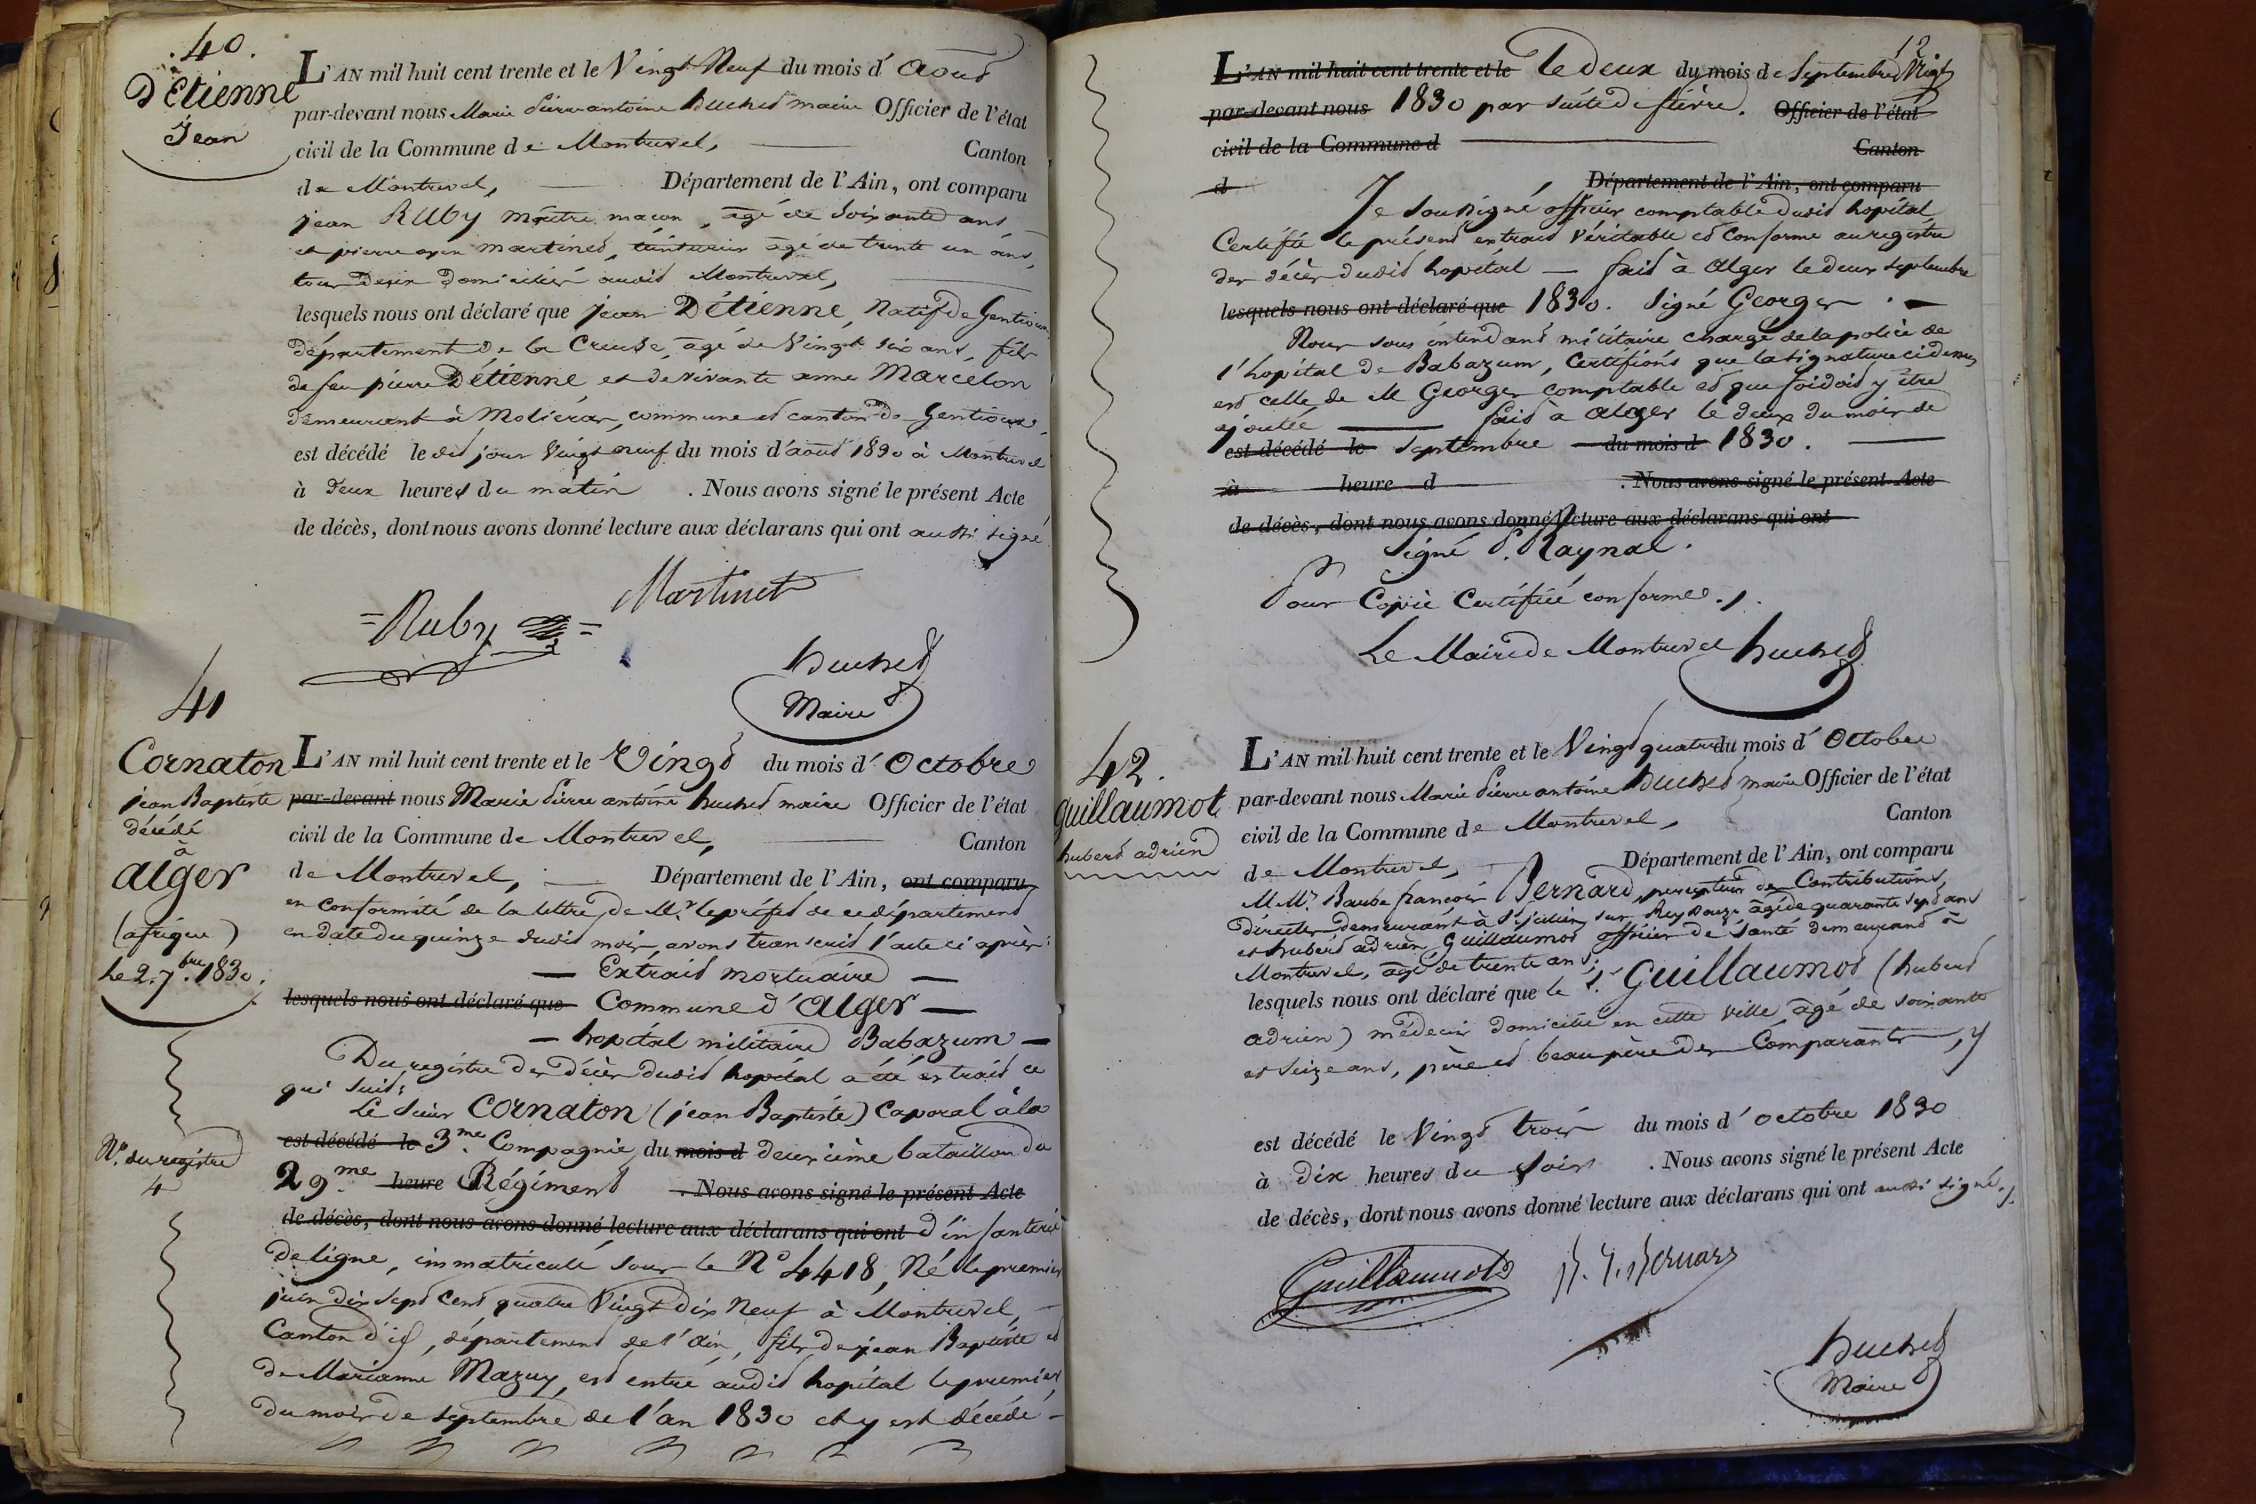 40.
Détienne
Jean
L'AN mil huit cent trente et le Vingt Neuf du mois d'aout
par-devant nous Marie Pierre antoine huchet maire Officier de l'état
civil de la Commune de Montrevel, Canton
de Montrevel, Département de l'Ain, ont comparu
jean RUby maître maçon, agé de Soixante ans
et pierre martinet, teinturier agé de trente un ans,
tous deux domicilié audit Montrevel,
lesquels nous ont déclaré que jean Détienne, Natif de Gentioux
département de la Creuse, agé de Vingt six ans, fils
de feu pierre Détienne et de vivante anne Marcelon
demeurant à Molieras, commune et canton de Gentioux,
est décédé le dit jour Vingt neuf du mois d'aout 1830 à Montrevel
à deux heures du matin . Nous avons signé le présent Acte
de décès, dont nous avons donné lecture aux déclarans qui ont aussi signé
Ruby Martinet
huchet
Maire
41
Cornaton
jean Baptiste
décédé
à
alger
(afrique)
le 2. 7.bre 1830.
N.o du registre
4
L'AN mil huit cent trente et le Vingt du mois d'Octobre
par-devant nous Marie Pierre antoine huchet maire Officier de l'état
civil de la Commune de Montrevel, Canton
de Montrevel, Département de l'Ain, ont comparu
en conformité de la lettre de Mr. le préfet de ce département
en date du quinze dudit mois, avons transcrit l'acte ci après:
Extrait mortuaire
lesquels nous ont déclaré que Commune d'alger
hopital militaire Babazum
Du registre des décès dudit hopital a été extrait ce
qui suit:
Le sieur Cornaton (jean Baptiste) Caporal à la
est décédé le 3.me Compagnie du mois d deuxième bataillon du
29.me heure Régiment . Nous avons signé le présent Acte
de décès, dont nous avons donné lecture aux déclarans qui ont d'infanterie
de ligne, immatriculé sous le No 4418, Né le premier
juin dix sept cent quatre Vingt Dix Neuf à Montrevel,
Canton d'id, département de l'ain, fils de jean Baptiste et
de Marianne Mazuy, est entré audit hopital le premier
du mois de septembre de l'an 1830 et y est décédé
12
L'AN mil huit cent trente et le le deux du mois de Septembre
par-devant nous 1830 par suite de fièvre. Officier de l'état
civil de la Commune d Canton
d Département de l'Ain, ont comparu
Je soussigné officier comptable dudit hopital
Certifie le présent extrait Véritable et Conforme au registre
des décès dudit hopital — fait à Alger le deux septembre
lesquels nous ont déclaré que 1830. Signé Georges.
Nous sous intendant militaire chargé de la police de
l'hopital de Babazum, Certifions que la signature ci dessus
est celle de M Georges comptable et que foi doit y être
ajoutée fait a alger le deux du mois de
est décédé le septembre du mois d 1830.
à heure d . Nous avons signé le présent Acte
de décès, dont nous avons donné lecture aux déclarans qui ont
Signé P. Raynal.
Pour Copie Certifiée conforme./.
Le Maire de Montrevel huchet
42.
Guillaumot
hubert adrien
L'AN mil huit cent trente et le Vingt quatre du mois d'Octobre
par-devant nous Marie Pierre antoine huchet maire Officier de l'état
civil de la Commune de Montrevel, Canton
de Montrevel, Département de l'Ain, ont comparu
M Mr. françois Bernard, percepteur des Contributions
directes demeurant à St. julien sur Reyssouze agé de quarante sept ans
et hubert adrien Guillaumot officier de santé demeurant à
Montrevel, agé de trente ans;
lesquels nous ont déclaré que le S. Guillaumot (hubert
adrien) médecin domicilié en cette ville agé de soixante
et seize ans, père et beaupère des Comparants, y
est décédé le Vingt trois du mois d'octobre 1830
à dix heures du soir . Nous avons signé le présent Acte
de décès, dont nous avons donné lecture aux déclarans qui ont aussi signé./.
Guillaumot Bernard
huchet
Maire